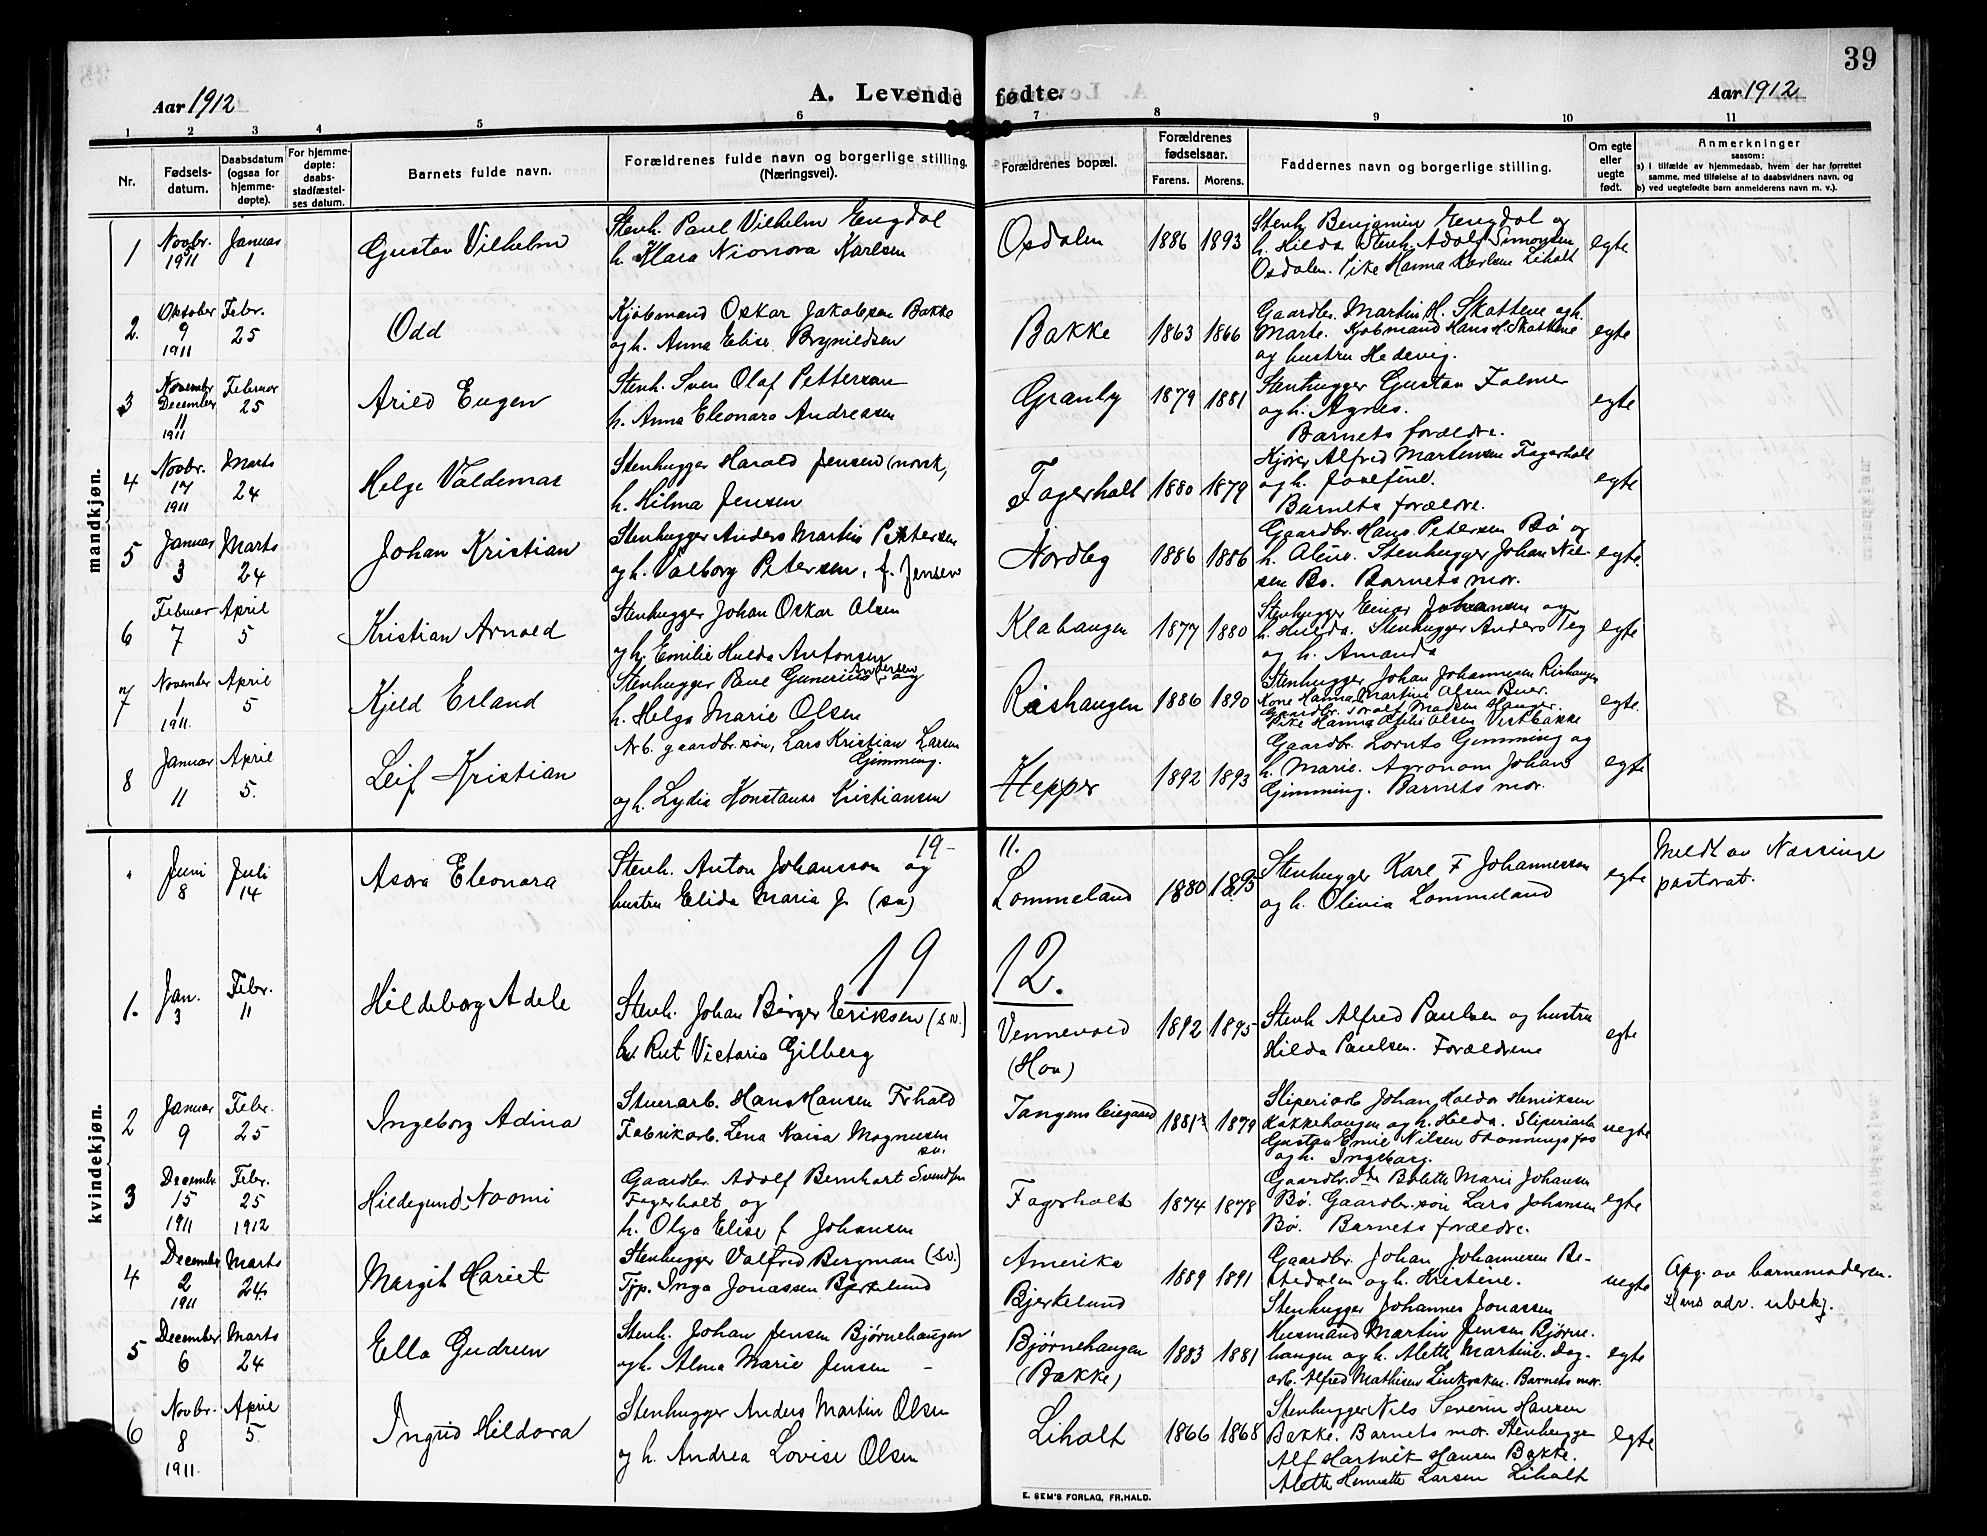 39
Aar 1912
A. Levende fødte.
Aar 1912
1 2 3 4 5 6 7 8 9 10 11
Nr.
Fødsels-datum.
Daabsdatum (ogsaa for hjemme-døpte).
For hjemme-døpte: daabs-stadfæstel-ses datum.
Barnets fulde navn.
Forældrenes fulde navn og borgerlige stilling. (Næringsvei).
Forældrenes bopæl.
Forældrenes fødselsaar.
Farens. Morens.
Faddernes navn og borgerlige stilling.
Om egte eller uegte født.
Anmerkninger
saasom:
a) i tilfælde av hjemmedaab, hvem der har forrettet samme, med tilføielse af to daabsvidners navn, og
b) ved uegtefødte børn anmelderens navn m. v.).
mandkjøn.
1 Novbr. 1911 Januar 1 Gustav Vilhelm
Stenh. Paul Vilhelm Engdal
h. Klara Nionora Karlsen
Osdalen 1886 1893
Stenh. Benjamin Engdal og
h. Hilda. Stenh. Adolf Simonsen
Osdalen. Pike Hanna Karlsen Liholt
egte
2. Oktober 9 1911 Febr. 25 Odd
Kjøbmand Oskar Jakobsen Bakke
og h. Anna Elise Brynildsen
Bakke 1863 1866
Gaardbr. Martin H. Skattene og h.
Marte. Kjøbmand Hans H. Skattene
og hustru Hedevig.
egte
3 November December 11 1911 Februar 25 Arild Eugen
Stenh. Sven Olaf Petterson
h. Anna Eleonora Andreasen
Granly 1879 1881
Stenhugger Gustav Falmer
og h. Agnes.
Barnets forældre.
egte
4 Novbr. 17 1911 Marts 24 Helge Valdemar
Stenhugger Harald Jensen (norsk,
h. Hilma Jensen
Fagerholt 1880 1879
Kjører Alfred Martensen Fagerholt
og h. Josefine.
Barnets forældre.
egte
5 Januar 3 Marts 24 Johan Kristian
Stenhugger Anders Martin Petersen
og h. Valborg Petersen, f. Jensen
Nordby 1886 1886
Gaardbr. Hans Petersen Bø og
h. Aline. Stenhugger Johan Niel-
sen Bø. Barnets mor.
egte.
6 Februar 7 April 5 Kristian Arnold
Stenhugger Johan Oskar Olsen
og h. Emilie Hulda Antonsen
Klahaugen 1877 1880
Stenhugger Einar Johansen og
h. Hulda. Stenhugger Anders Teg
og h. Amanda
egte
7 November 1 1911. April 5 Kjeld Erland
Stenhugger Paul Gunerius Andersen og
h. Helga Marie Olsen
Rishaugen 1886 1890
Stenhugger Johan Johannesen Rishaugen
Kone Hanna Martine Olsen Buer.
Gaardbr. Toralf Madsen Hauger.
Pike Hanna Otilie Olsen Vestbakke
egte.
8 Januar 11 April 5. Leif Kristian
Arb. gaardbr.søn, Lars Kristian Larsen
Gimming.
og h. Lydia Konstanse Kristiansen
Hepper 1892 1893
Gaardbr. Lornts Gimming og
h. Marie. Agronom Johan
Gimming. Barnets mor.
egte
19- 11.
Juni 8 Juli 14 Asora Eleonora
Stenh. Anton Johansson og
hustru Elida Maria J. (sv)
Lommeland 1880 1895
Stenhugger Karl F Johannessen
og h. Olivia Lommeland
egte
Meldt av Næsinge
pastorat.
19 12.
kvindekjøn.
1. Jan. 3 Febr. 11 Hildeborg Adele
Stenh. Johan Birger Eriksen (sv.)
h. Rut Victoria Gilberg
Vennevold
(Hov)
1892 1895
Stenh Alfred Paulsen og hustru
Hilda Paulsen. Forældrene
egte
2 Januar 9 Febr. 25 Ingeborg Adina
Stuerarb. Hans Hansen Frhald
Fabrikarb. Lena Kaisa Magnusen
sv.
Tangens leiegaard 1881 1879
Sliperiarb Johan Haldor Henriksen
Kakkehaugen og h. Hilda. Sliperiarb
Gustav Emil Nilsen Skonningsfos
og h. Ingeborg.
uegte
3 Decembr. 15 1911 Febr. 25 1912 Hildegund Noomi
Gaardbr. Adolf Bernhart Svendsen
Fagerholt og
h. Olga Elise f. Johansen
Fagerholt 1874 1878
Gaardbr. Bolette Marie Johansen
Bø. Gaardbr.søn Lars Johansen
Bø. Barnets forældre.
egte
4 December 2 1911 Marts 24. Margit Hariet
Stenhugger Valfred Bergman (sv.)
Tjp. Inga Jonassen Bjerkelund
Amerika
Bjerkelund
1889 1891
Gaardbr. Johan Johannesen Be-
stedalen og h. Kristine.
Stenhugger Johannes Jonassen
uegte
Opg. av barnemoderen.
Hans adr. ubekj.
5 December 6 Marts 24 Ella Gudrun
Stenh. Johan Jensen Bjørnehaugen
og h. Alma Marie Jensen -
Bjørnehaugen
(Bakke)
1883 1881
Husmand Martin Jensen Bjørne-
haugen og h. Alette Martine. Dag-
arb. Alfred Mathisen Linkroken. Barnets mor.
egte
6 Novbr. 8 1911. April 5 Ingrid Hildora
Stenhugger Anders Martin Olsen
og h. Andrea Lovise Olsen
Liholt 1866 1868
Stenhugger Nils Severin Hansen
Bakke. Barnets mor. Stenhugger
Alf Hartvik Hansen Bakke.
Alette Henriette Larsen Liholt
egte
E. SEM'S FORLAG, FR.HALD.